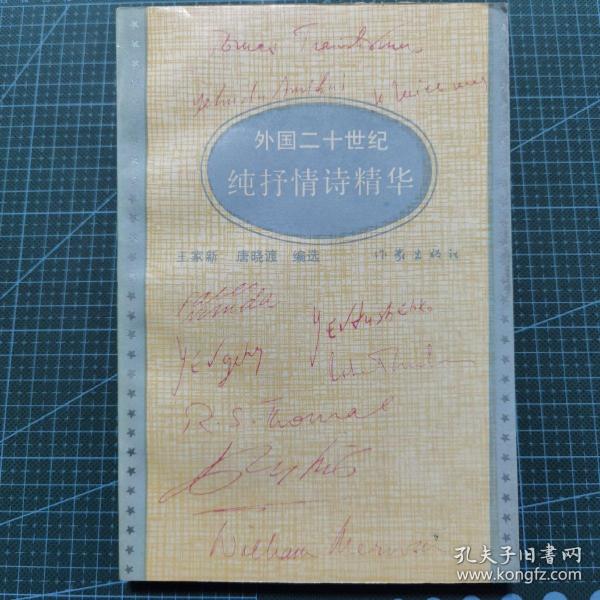 Tomas Tranströmer
Yehuda Amichai
外国二十世纪
纯抒情诗精华
王家新 唐晓渡 编选 作家出版社
Yevgeny Yevtushenko
R.S. Thomas
William Merwin
孔夫子旧书网
www.kongfz.com